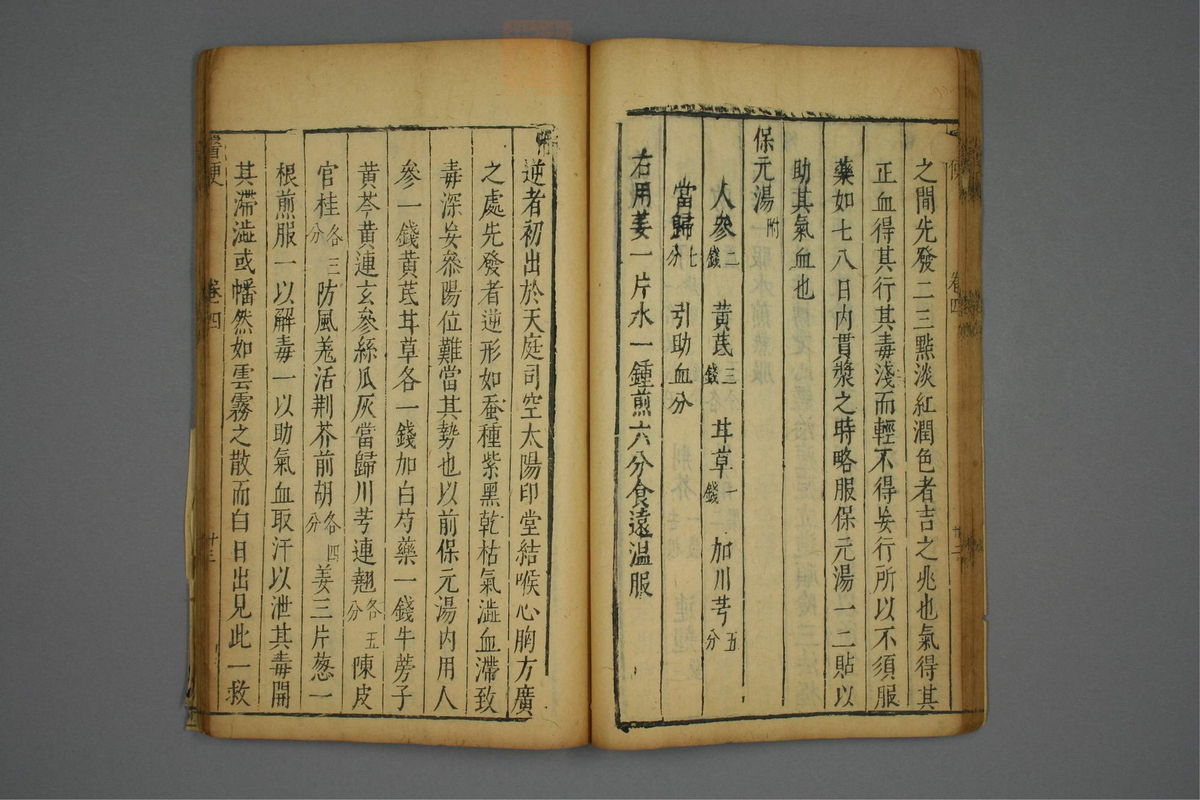 之間先發二三點淡紅潤色者吉之兆也氣得其
正血得其行其毒淺而輕不得妄行所以不須服
藥如七八日内貫漿之時略服保元湯一二貼以
助其氣血也
保元湯附
人參二錢 黃芪三錢 甘草一錢 加川芎五分
當歸七分 引助血分
右用姜一片水一鍾煎六分食遠溫服
逆者初出於天庭司空太陽印堂結喉心胸方廣
之處先發者逆形如蚕種紫黑乾枯氣澁血滯致
毒深妄參陽位難當其勢也以前保元湯内用人
參一錢黃芪甘草各一錢加白芍藥一錢牛蒡子
黃芩黃連玄參絲瓜灰當歸川芎連翹各五分陳皮
官桂各三分防風羗活荆芥前胡各四分姜三片葱一
根煎服一以解毒一以助氣血取汗以泄其毒開
其滯澁或幡然如雲霧之散而白日出見此一救
卷四
廿三